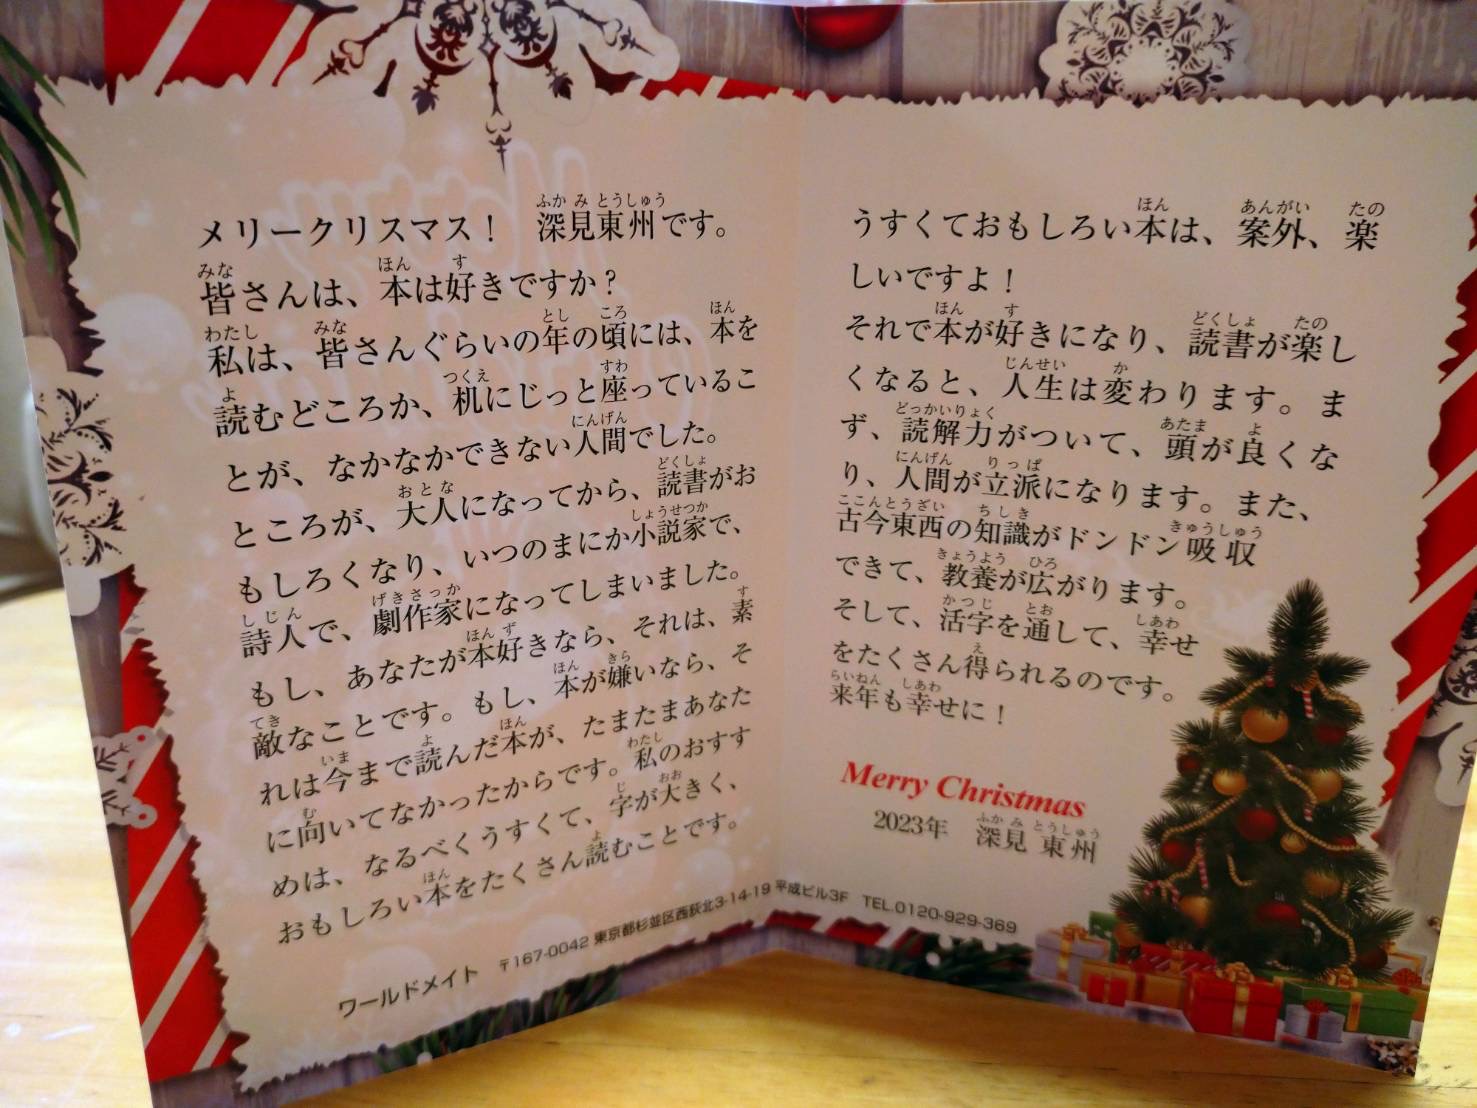 メリークリスマス！　深見東州です。
皆さんは、本は好きですか？
私は、皆さんぐらいの年の頃には、本を
読むどころか、机にじっと座っているこ
とが、なかなかできない人間でした。
ところが、大人になってから、読書がお
もしろくなり、いつのまにか小説家で、
詩人で、劇作家になってしまいました。
もし、あなたが本好きなら、それは、素
敵なことです。もし、本が嫌いなら、そ
れは今まで読んだ本が、たまたまあなた
に向いてなかったからです。私のおすす
めは、なるべくうすくて、字が大きく、
おもしろい本をたくさん読むことです。
うすくておもしろい本は、案外、楽
しいですよ！
それで本が好きになり、読書が楽し
くなると、人生は変わります。ま
ず、読解力がついて、頭が良くな
り、人間が立派になります。また、
古今東西の知識がドンドン吸収
できて、教養が広がります。
そして、活字を通して、幸せ
をたくさん得られるのです。
来年も幸せに！
Merry Christmas
2023年　深見 東州
ワールドメイト　〒167-0042 東京都杉並区西荻北3-14-19 平成ビル3F　TEL.0120-929-369